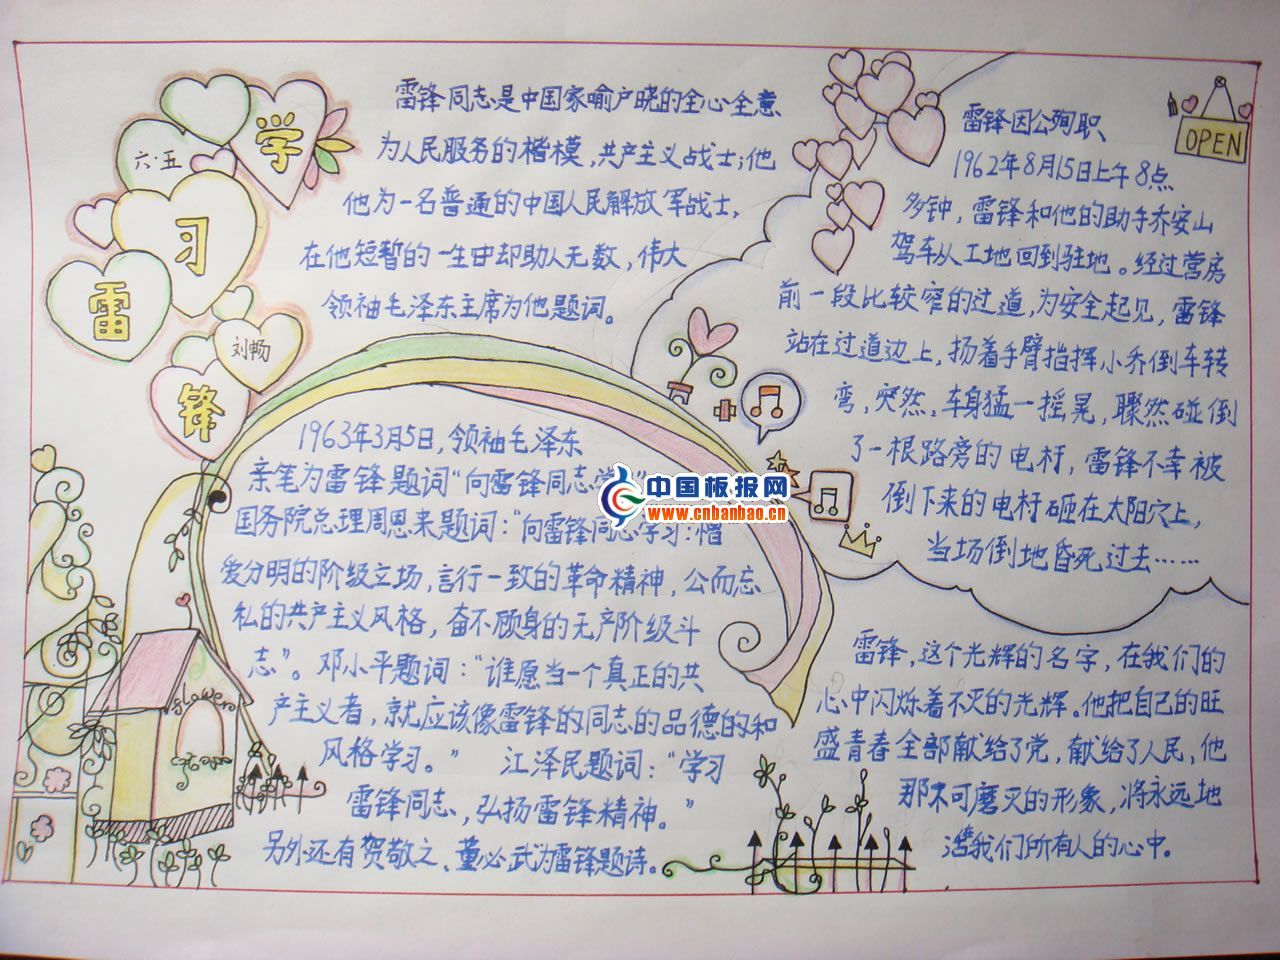 学
六·五
习
雷
刘畅
锋
雷锋同志是中国家喻户晓的全心全意
为人民服务的楷模，共产主义战士；他
他为一名普通的中国人民解放军战士，
在他短暂的一生中却助人无数，伟大
领袖毛泽东主席为他题词。
1963年3月5日，领袖毛泽东
亲笔为雷锋题词“向雷锋同志学
国务院总理周恩来题词：“向雷锋同志学习：憎
爱分明的阶级立场，言行一致的革命精神，公而忘
私的共产主义风格，奋不顾身的无产阶级斗
志”。邓小平题词：“谁愿当一个真正的共
产主义者，就应该像雷锋的同志的品德的和
风格学习。” 江泽民题词：“学习
雷锋同志，弘扬雷锋精神。”
另外还有贺敬之、董必武为雷锋题诗。
中国板报网
www.cnbanbao.cn
OPEN
雷锋因公殉职
1962年8月15日上午8点
多钟，雷锋和他的助手乔安山
驾车从工地回到驻地。经过营房
前一段比较窄的过道，为安全起见，雷锋
站在过道边上，扬着手臂指挥小乔倒车转
弯，突然，车身猛一摇晃，骤然碰倒
了一根路旁的电杆，雷锋不幸被
倒下来的电杆砸在太阳穴上，
当场倒地昏死过去……
雷锋，这个光辉的名字，在我们的
心中闪烁着不灭的光辉。他把自己的旺
盛青春全部献给了党，献给了人民，他
那不可磨灭的形象，将永远地
活我们所有人的心中。